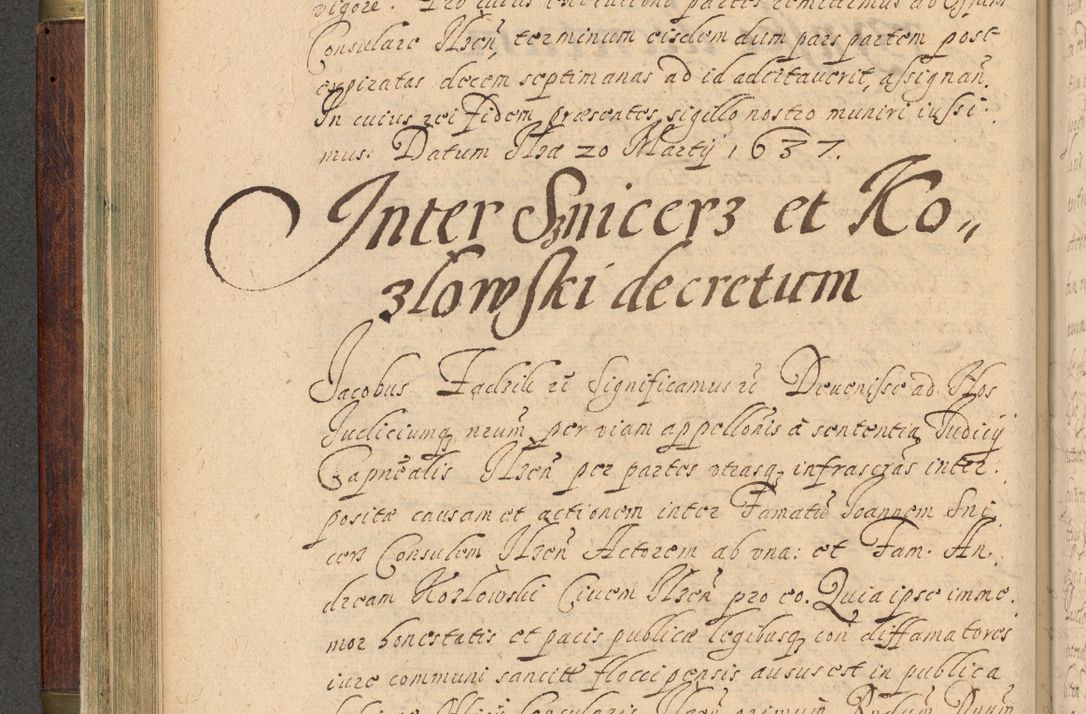 vigore. Pro cuius executione partes remittimus ad Offium
Consulare Ilzen̄ terminum eisdem dum pars partem post
expiratas decem septimanas ad id adcitauerit, assignan̄.
In cuius rei fidem præsentes sigillo nostro muniri iussi-
mus. Datum Ilzæ 20 Martij 1637.
Inter Snicerz et Ko„
złowſki decretum
Jacobus Zadzik etc̄ Significamus etc̄ Deuenisse ad Nos
Judiciumq nr̄um per viam appellōnis a sententia Judicij
Capnēalis Ilzen̄ per partes vtrasq infrascrās inter-
positæ causam et actionem inter Famatū Joannem Sni-
cerz Consulem Ilzen̄ Actorem ab vna: et Fam. An-
dream Kozłowski Ciuem Ilzen̄ pro eo. Quia ipse imme-
mor honestatis et pacis publicæ legibusq con̄ diffamatores
iure communi sancitē floccipensis ausus est in publica
Consularis Ilzen̄ primum